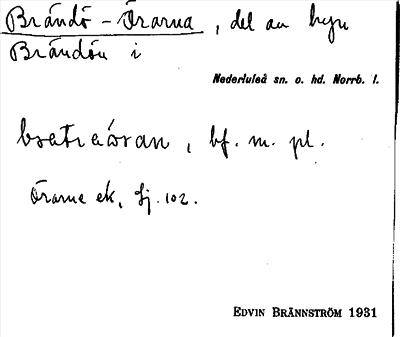 Brändö-Örarna, del av byn
Brändön i
Nederluleå sn. o. hd. Norrb. l.
bf. m. pl.
Örarne ek, Gj. 102.
EDVIN BRÄNNSTRÖM 1931